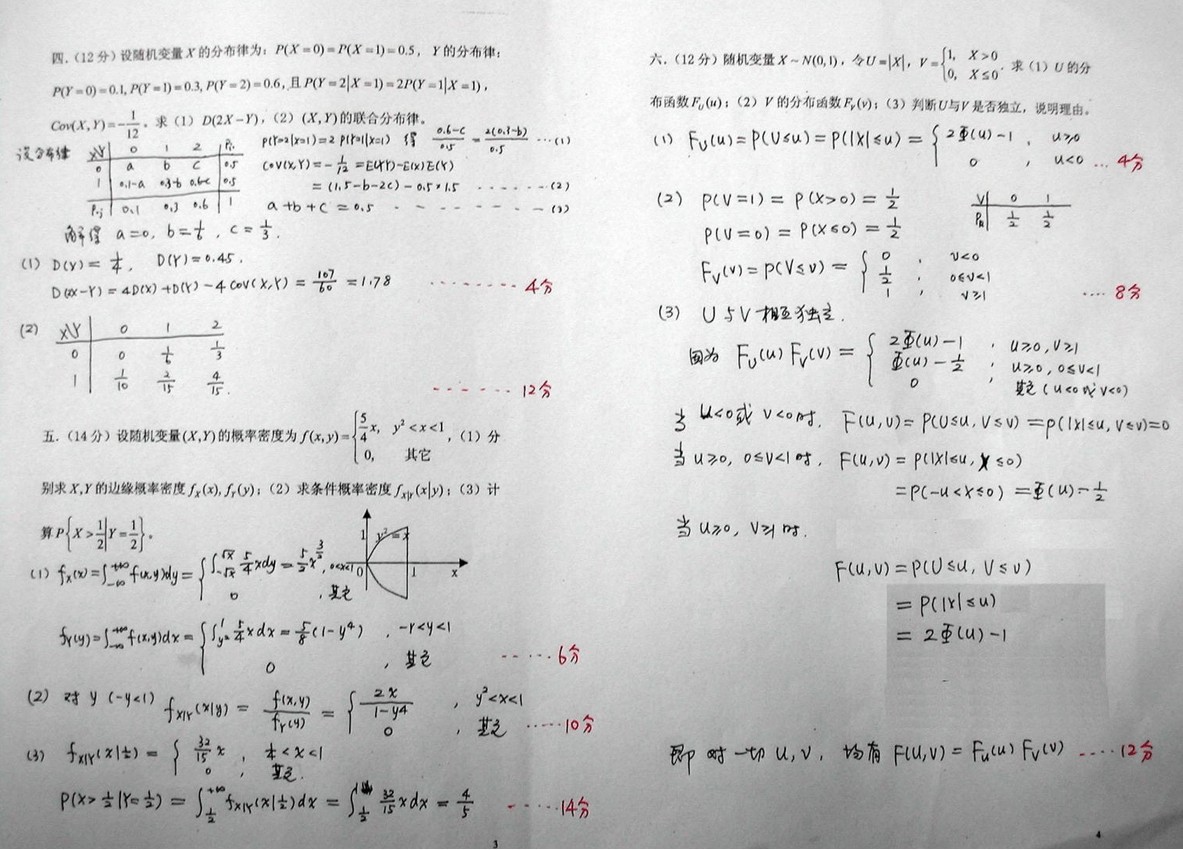 四.（12分）设随机变量X的分布律为: P(X=0)=P(X=1)=0.5, Y的分布律:
P(Y=0)=0.1, P(Y=1)=0.3, P(Y=2)=0.6, 且P(Y=2|X=1)=2P(Y=1|X=1),
Cov(X,Y)=-1/12. 求（1）D(2X-Y),（2）(X,Y)的联合分布律。
设分布律
X\Y 0 1 2 Pi.
0 a b c 0.5
1 0.1-a 0.3-b 0.6-c 0.5
P.j 0.1 0.3 0.6 1
P(Y=2|X=1)=2P(Y=1|X=1) 得 (0.6-c)/0.5 = 2(0.3-b)/0.5 ···(1)
COV(X,Y)=-1/12=E(XY)-E(X)E(Y)
=(1.5-b-2c)-0.5×1.5 ······(2)
a+b+c=0.5 ······(3)
解得 a=0, b=1/6, c=1/3.
(1) D(X)=1/4, D(Y)=0.45.
D(2X-Y)=4D(X)+D(Y)-4COV(X,Y)=107/60=1.78 ········4分
(2) X\Y 0 1 2
0 0 1/6 1/3
1 1/10 2/15 4/15.
······12分
五.（14分）设随机变量(X,Y)的概率密度为f(x,y)={5/4 x, y²<x<1; 0, 其它,（1）分
别求X,Y的边缘概率密度f_X(x), f_Y(y);（2）求条件概率密度f_X|Y(x|y);（3）计
算P{X>1/2|Y=1/2}。
1 y²=x 0 1 x
(1) f_X(x)=∫_{-∞}^{+∞}f(x,y)dy={∫_{-√x}^{√x} 5/4 xdy=5/2 x^{3/2}, 0<x<1; 0, 其它
f_Y(y)=∫_{-∞}^{+∞}f(x,y)dx={∫_{y²}^{1} 5/4 xdx=5/8(1-y⁴), -1<y<1; 0, 其它
·····6分
(2) 对y (-y<1) f_X|Y(x|y)=f(x,y)/f_Y(y)={2x/(1-y4), y²<x<1; 0, 其它 ·····10分
(3) f_X|Y(x|1/2)={32/15 x, 1/4<x<1; 0, 其它.
P(X>1/2|Y=1/2)=∫_{1/2}^{+∞}f_X|Y(x|1/2)dx=∫_{1/2} 32/15 xdx=4/5 ·····14分
3
六.（12分）随机变量X~N(0,1), 令U=|X|, V={1, X>0; 0, X≤0. 求（1）U的分
布函数F_U(u);（2）V的分布函数F_V(v);（3）判断U与V是否独立，说明理由。
(1) F_U(u)=P(U≤u)=P(|X|≤u)={2Φ(u)-1, u≥0; 0, u<0 ···4分
(2) P(V=1)=P(X>0)=1/2
V 0 1
Pk 1/2 1/2
P(V=0)=P(X≤0)=1/2
F_V(v)=P(V≤v)={0, v<0; 1/2, 0≤v<1; 1, v≥1 ····8分
(3) U与V相互独立.
因为 F_U(u)F_V(v)={2Φ(u)-1, u≥0,v≥1; Φ(u)-1/2, u≥0,0≤v<1; 0, 其它(u<0或v<0)
当u<0或v<0时, F(u,v)=P(U≤u,V≤v)=P(|X|≤u,V≤v)=0
当u≥0, 0≤v<1时, F(u,v)=P(|X|≤u,X≤0)
=P(-u<X≤0)=Φ(u)-1/2
当u≥0, v≥1时.
F(u,v)=P(U≤u,V≤v)
=P(|X|≤u)
=2Φ(u)-1
即对一切u,v, 均有F(u,v)=F_U(u)F_V(v) ····12分
4